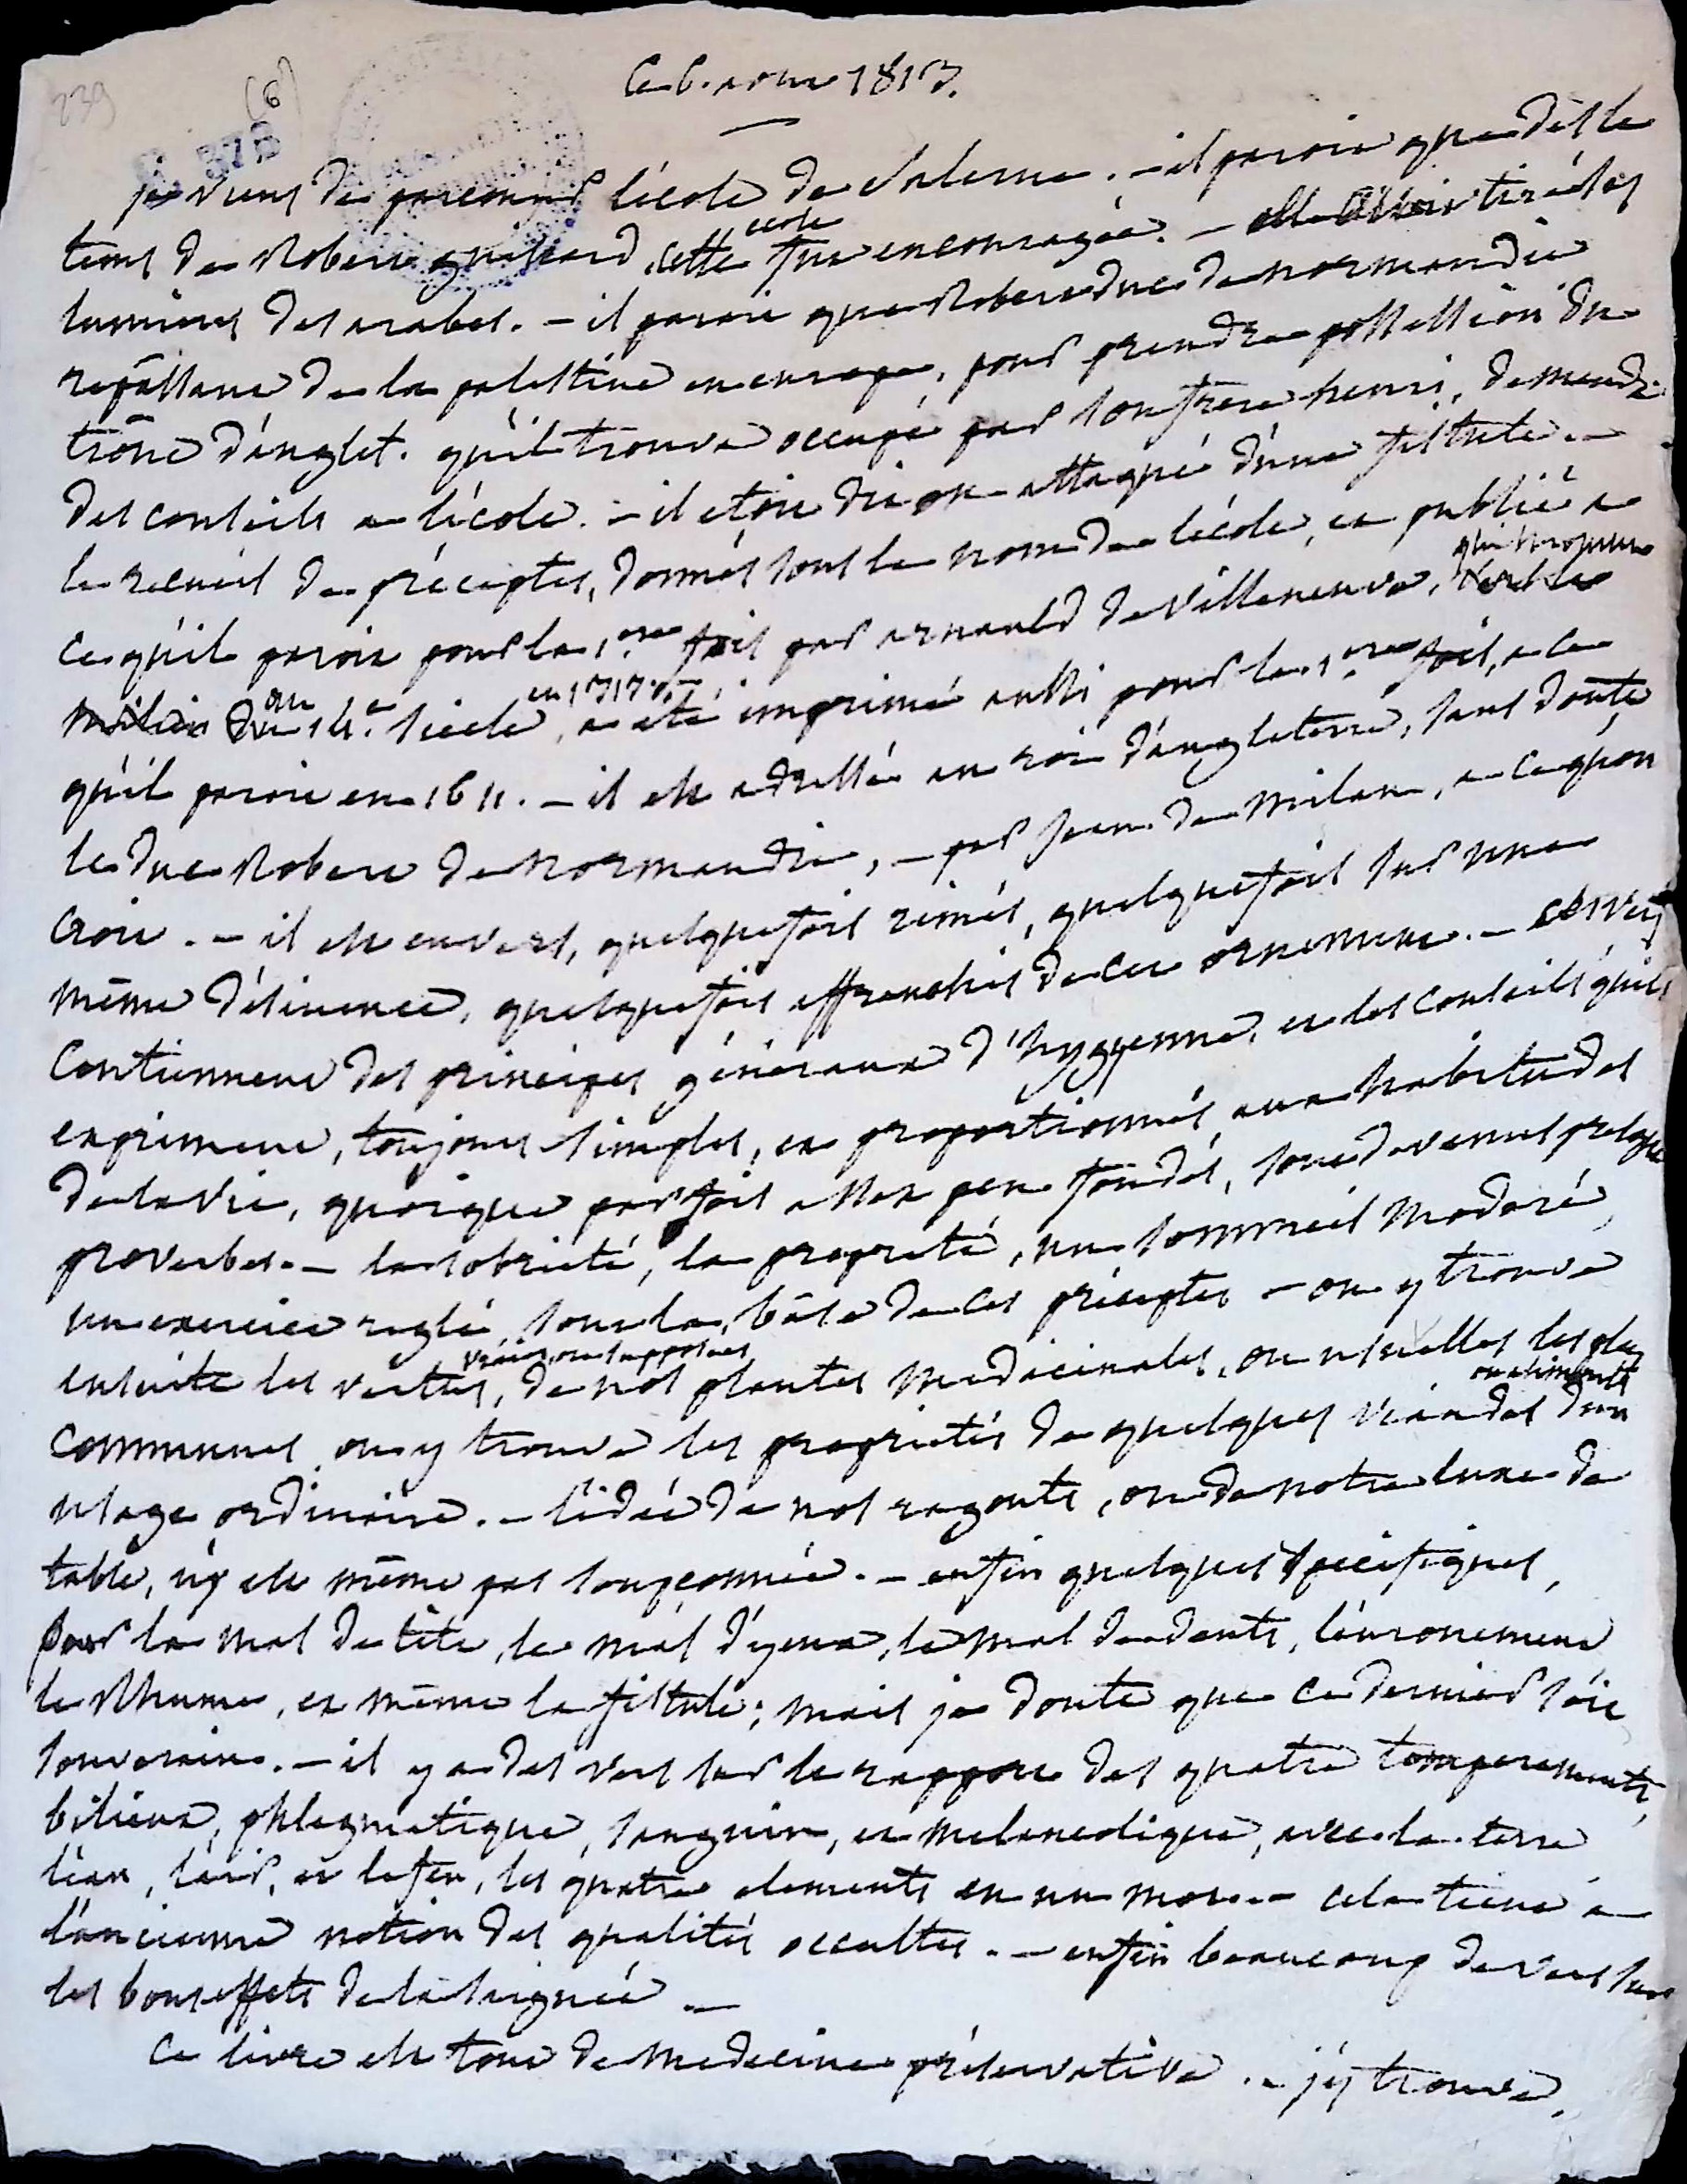 239
(6)
378
Ce 6. aout 1813.
je viens de parcourir l'école de Salerne. – il paroit que dès le
tems de Robert guiscard, cette ecole fut encouragée. – elle avoit tiré des
lumieres des arabes. – il paroit que Robert duc de normandie
repassant de la palestine en europe, pour prendre possession du
trône d'anglet. qu'il trouva occupé par son frere henri, demanda
des conseils a l'école. – il etoit dit on attaqué d'une fistule. –
le recueil de préceptes, donnés sous le nom de l'école, et publié a
ce qu'il paroit pour la 1.ere fois par arnauld de Villeneuve, qui mourut
au 14.e siecle, en 1313. a été imprimé aussi pour la 1.ere fois, a ce
qu'il paroit en 1611. – il est adressé au roi d'angleterre, sans doute
le duc Robert de normandie, – par jean de milan, a ce qu'on
croit. – il est en vers, quelquefois rimés, quelquefois sur une
même désinence, quelquefois affranchis de cet ornement. – ces vers
contiennent des principes généraux d'hyggienne, et les conseils qu'ils
expriment, toujours simples, et proportionnés aux habitudes
de la vie, quoique parfois assez peu fondés, sont devenus presque
proverbes. – la sobrieté, la propreté, un sommeil moderé,
un exercice reglé, sont la base de ces préceptes – on y trouve
ensuite les vertus, vraies, ou supposées de nos plantes medicinales, ou usuelles les plus
communes, on y trouve les propriétés de quelques viandes ou aliments d'un
usage ordinaire. – l'idée de nos ragouts, ou de notre luxe de
table, n'y est même pas soupçonnée. – enfin quelques specifiques,
pour le mal de tête, le mal d'yeux, le mal de dents, l'enrouement
le Rhume, et même la fistule; mais je doute que ce dernier soit
souverain. – il y a des vers sur le rapport des quatre temperaments,
bilieux, phlegmatique, sanguin, et melancolique, avec la terre
l'eau, l'air, et le feu, les quatre elements en un mot. – cela tient a
l'ancienne notion des qualités occultes. – enfin beaucoup de vers sur
les bons effets de la saignée. –
Ce livre est tout de medecine préservative. – j'y trouve,